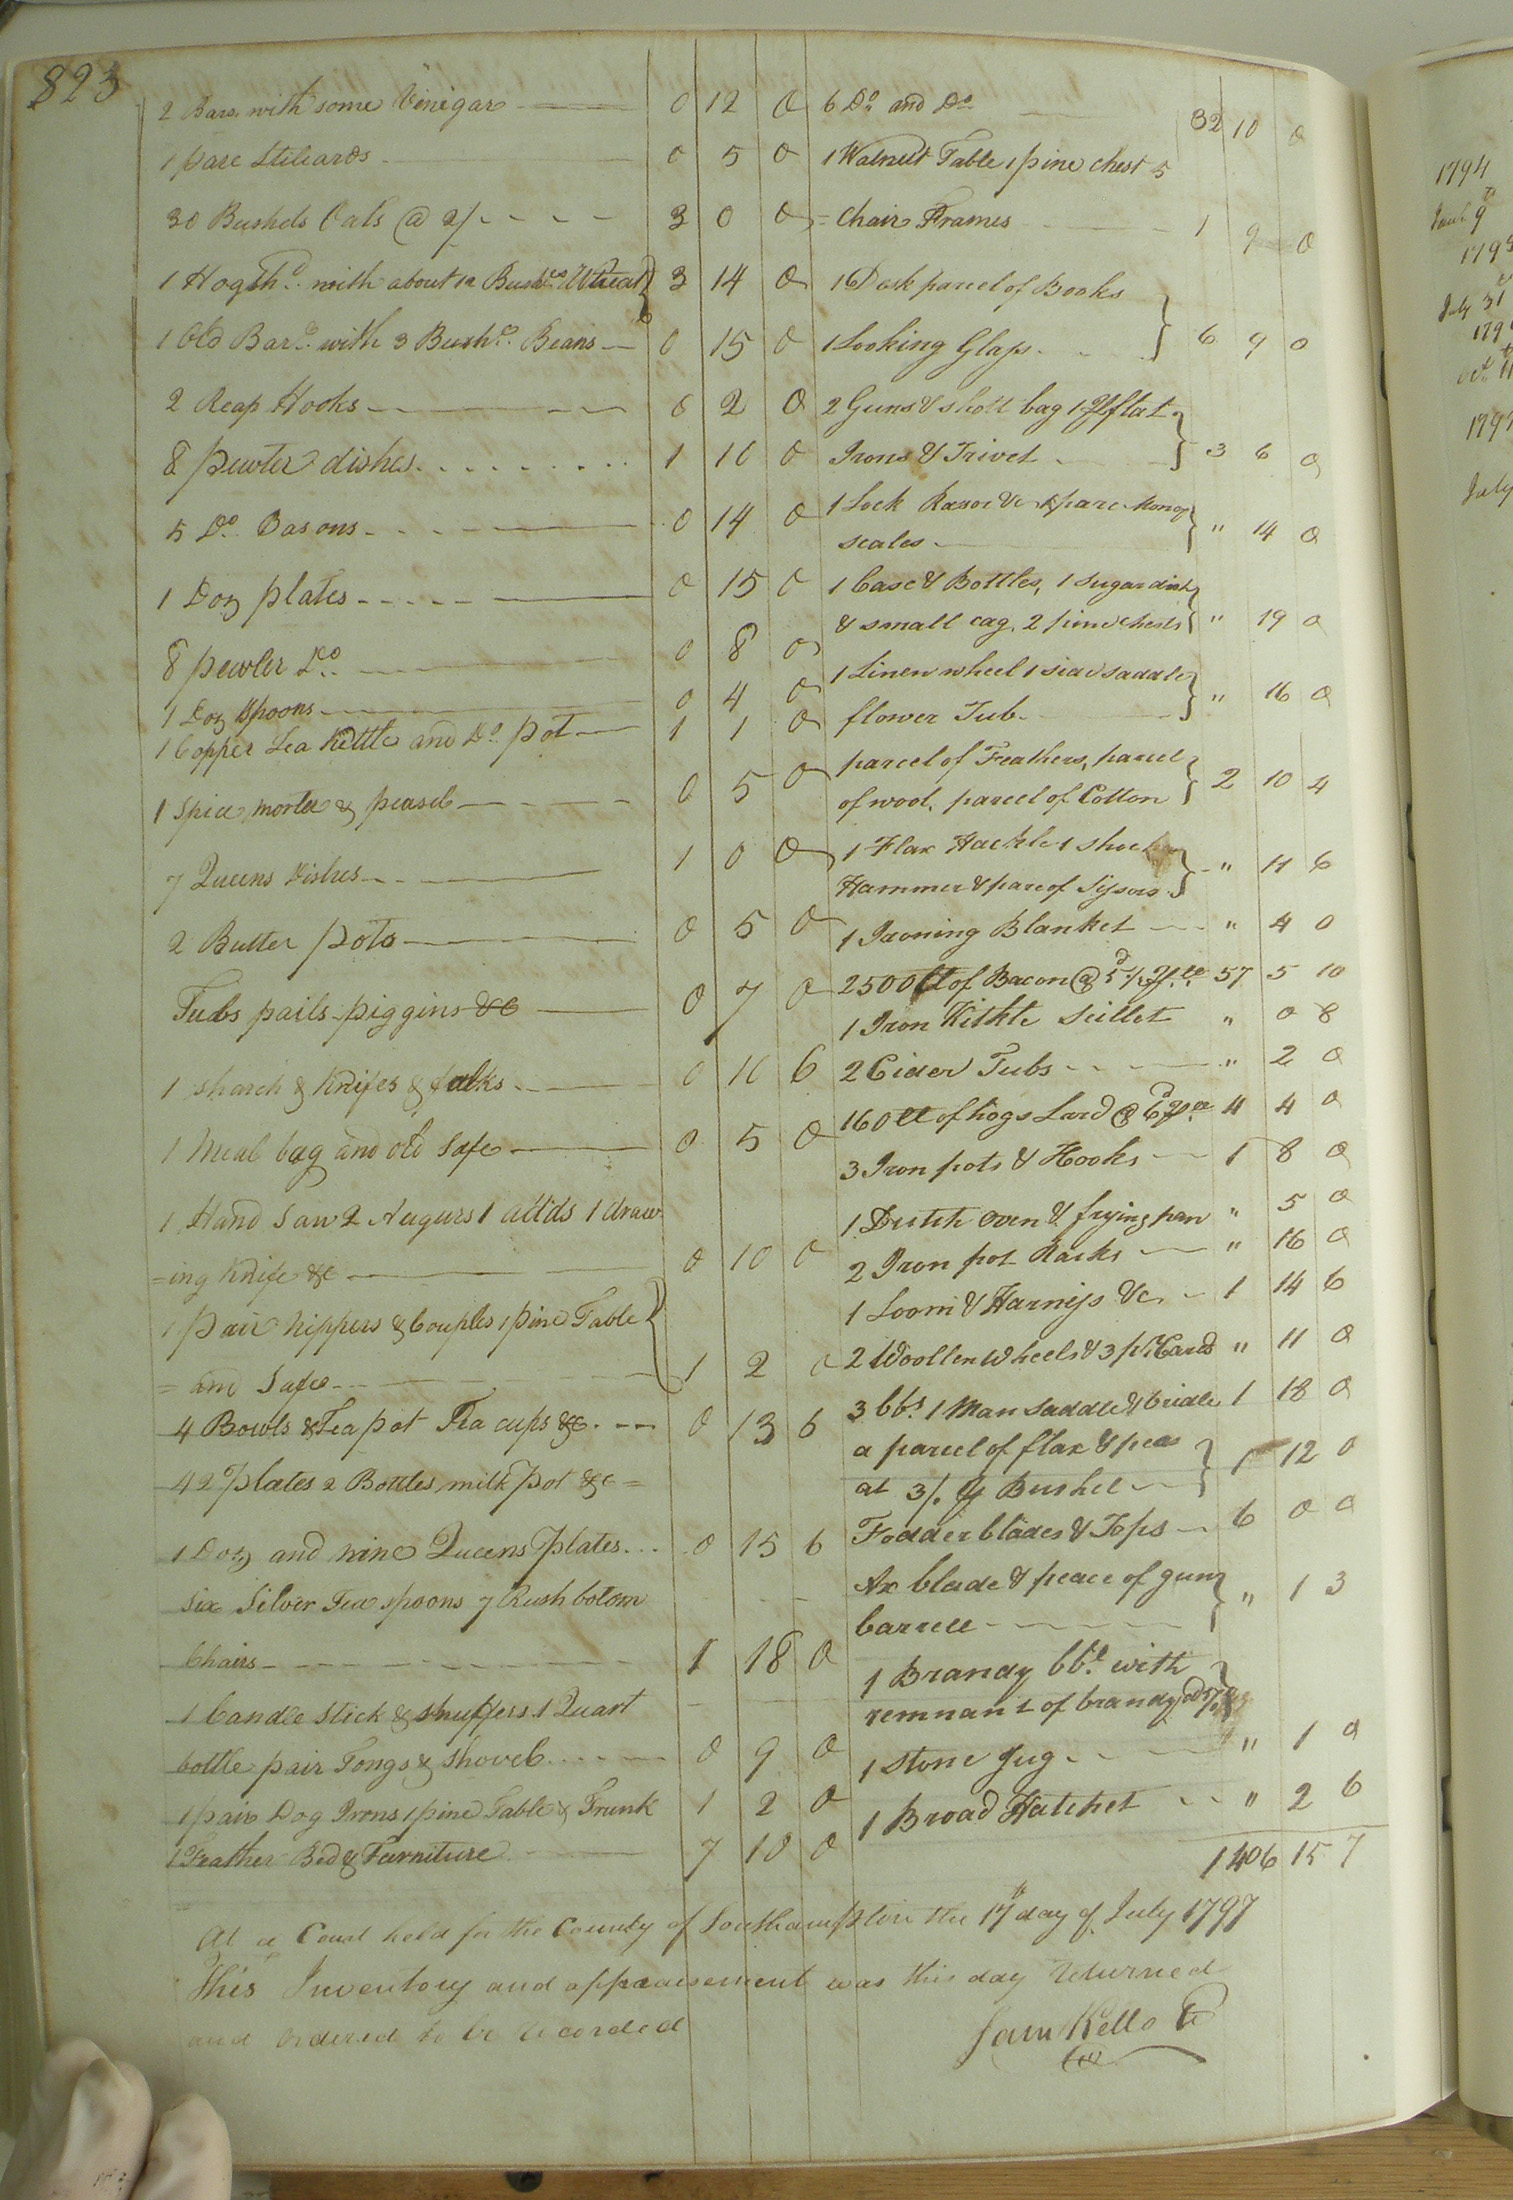 823
2 Bars. with some Vinigar 0 12 0
1 pare Stileards 0 5 0
30 Bushels Oats @ 2/ 3 0 0
1 Hogshd. with about 12 Bushes Wheat 3 14 0
1 Old Barl. with 3 Bushs. Beans 0 15 0
2 Reap Hooks 0 2 0
8 pewter dishes 1 10 0
5 Do. Basons 0 14 0
1 Doz plates 0 15 0
8 pewter Do. 0 8 0
1 Doz Spoons 0 4 0
1 Copper Tea Kittle and Do. pot 1 1 0
1 Spice morter & peasel 0 5 0
7 Queens Dishes 1 0 0
2 Butter pots 0 5 0
Tubs pails piggins &c 0 7 0
1 & Knifes & falks 0 10 6
1 Meal bag and old Safe 0 5 0
1 Hand Saw 2 Augurs 1 1 draw
=ing Knife &c 0 10 0
1 pair nippers & Couples 1 pine Table
= and Safe 1 2 0
4 Bowls & Tea pot Tea cups &c. 0 13 6
42 Plates 2 Bottles, milk pot &c =
1 Doz and nine Queens plates 0 15 6
Six Silver Tea spoons 7 Rush botom
Chairs 1 18 0
1 Candle stick & snuffers 1 Quart
bottle pair Tongs & shovel 0 9 0
1 pair Dog Irons 1 pine Table & Trunk 1 2 0
1 Feather Bed & Furniture 7 10 0
6 Do and Do 32 10 0
1 Walnut Table 1 pine chest 5
= Chair Frames 1 9 0
1 Desk parcel of Books
1 Looking Glass 6 9 0
2 Guns & shott bag 1 flat
Irons & Trivet 3 6 0
1 Lock Rasor &c & pare Mony
scales " 14 0
1 Case & Bottles, 1 Sugar dish
& small cag, 2 pine chests " 19 0
1 Linen wheel 1 side saddle
flower Tub " 16 0
parcel of Feathers, parcel
of wool, parcel of Cotton 2 10 4
1 Flax Hackle 1 shoe
Hammer & pare of Sijsors " 11 6
1 Ironing Blanket " 4 0
2500 lt of Bacon @ 5d 57 5 10
1 Iron Kittle Scillet " 0 8
2 Cider Tubs " 2 0
160 lt of hogs Lard @ 6d 4 4 0
3 Iron pots & Hooks 1 8 0
1 Dutch oven & frying pan " 5 0
2 Iron pot Racks " 16 0
1 Loom & Harness &c 1 14 6
2 Woollen wheels & 3 pr. Cards " 11 0
3 bbs. 1 Man saddle & bridle 1 18 0
a parcel of flax & peas
at 3/. Bushel 1 12 0
Fodder blades & Tops 6 0 0
Ax blade & peace of gun
barrell " 1 3
1 Brandy bbl. with
remnant of brandy
1 Stone Jug " 1 0
1 Broad Hatchet " 2 6
1406 15 7
At a Court held for the County of Southampton the 17th day of July 1797
This Inventory and appraisement was this day returned
and ordered to be recorded
Sam Kello
1794
9
July 31
July